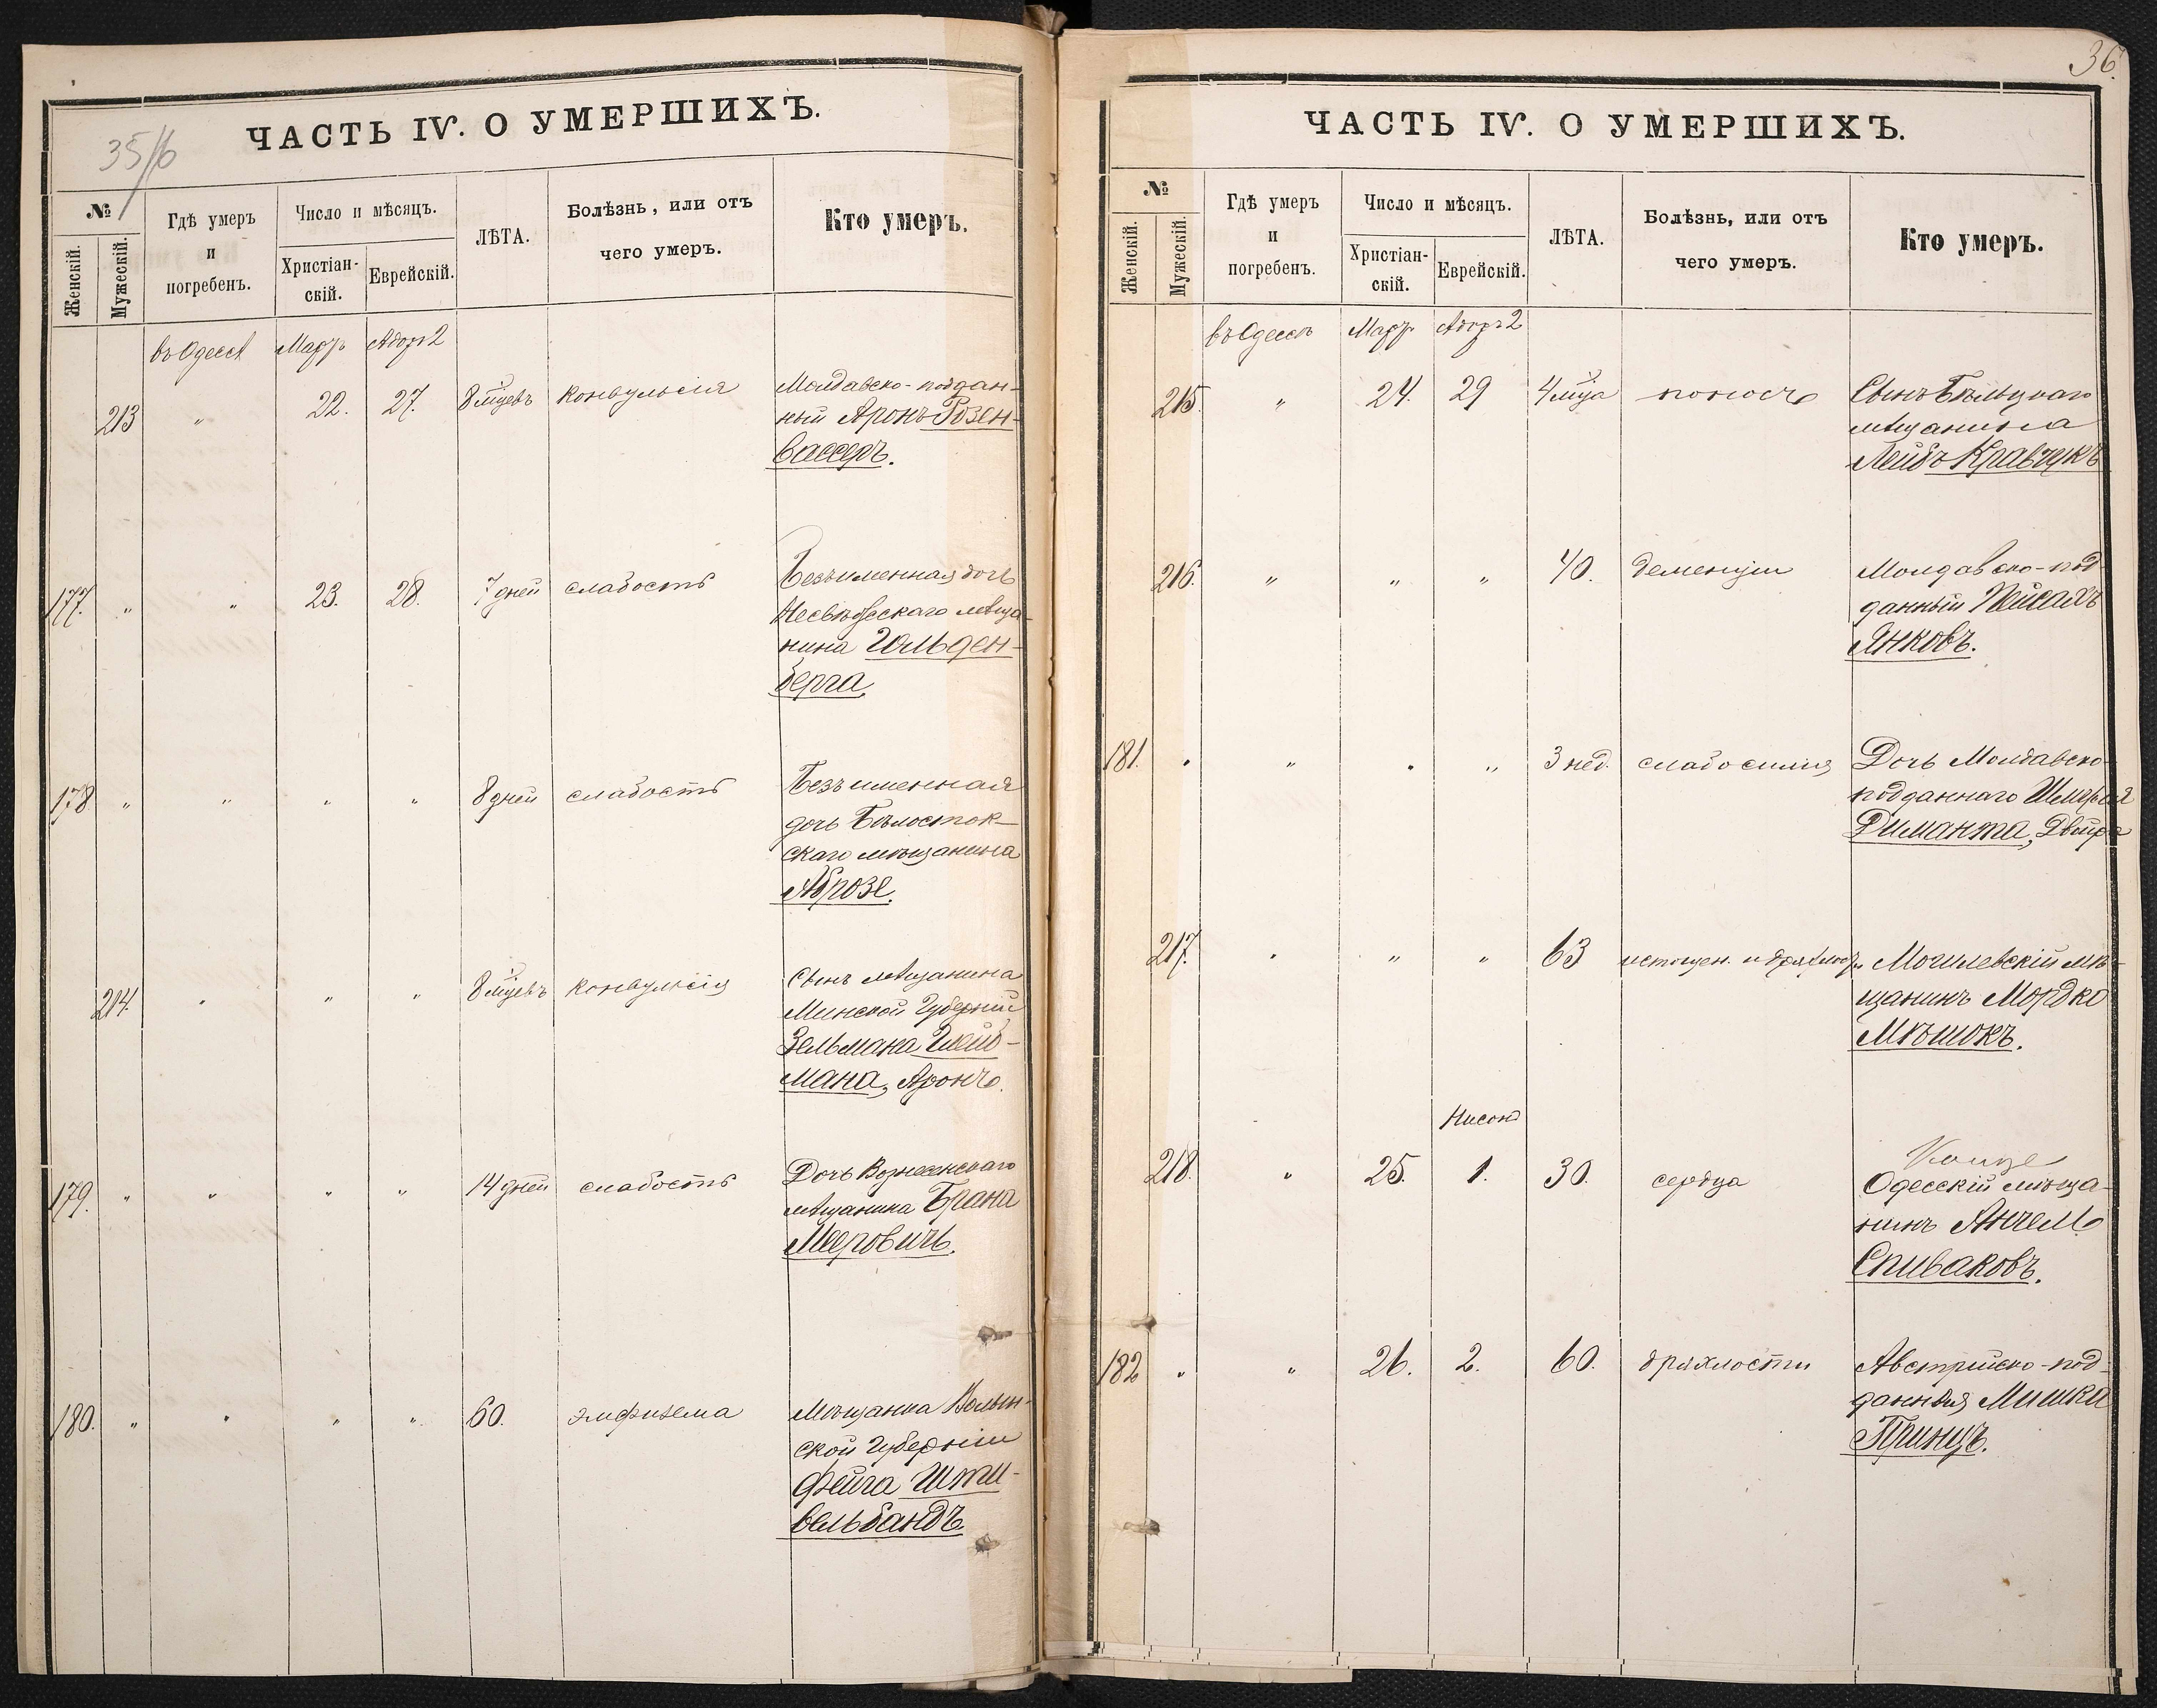 35/6
ЧАСТЬ IV. О УМЕРШИХЪ.
№
Женскій.
Мужескій.
Гдѣ умеръ
и
погребенъ.
Число и мѣсяцъ.
Христіан-
скій.
Еврейскій.
ЛѢТА.
Болѣзнь, или отъ
чего умеръ.
Кто умеръ.
въ Одессѣ Мартъ Адоръ 2
213 " 22. 27. 8 мцевъ конвульсія Молдавско-поддан-
ный Аронъ Розен-
вассеръ.
177. " " 23. 28. 7 дней слабость Безъименная дочь
Несвѣжескаго мѣща-
нина Гольден-
берга.
178 " " " " 8 дней слабость Безъименная
дочь Бѣлосток-
скаго мѣщанина
Аброзе.
214. " " " 8 мцевъ конвульсія Сынъ мѣщанина
Минской Губерніи
Зельмана Глейб-
мана, Аронъ.
179. " " " " 14 дней слабость Дочь Вознесенскаго
мѣщанина Брана
Мееровичъ.
180. " " " " 60. эмфизема Мѣщанка Волын-
ской Губерніи
Фейга Шти-
вельбандъ.
36.
ЧАСТЬ IV. О УМЕРШИХЪ.
№
Женскій.
Мужескій.
Гдѣ умеръ
и
погребенъ.
Число и мѣсяцъ.
Христіан-
скій.
Еврейскій.
ЛѢТА.
Болѣзнь, или отъ
чего умеръ.
Кто умеръ.
въ Одессѣ Мартъ Адоръ 2
215. " 24. 29 4 мца поносъ Сынъ Бѣльцкаго
мѣщанина
Лейбъ Кравчукъ
216. " " " 40. деменціи Молдавско-под-
данный Пейсахъ
Янковъ.
181. " " " " 3 нед. слабосилія Дочь Молдавско
подданнаго Шмерля
Диманта, Двейра
217. " " " 63 истощен. и дряхлост. Могилевскій мѣ-
щанинъ Мордко
Мѣшокъ.
Нисонъ
218. " 25. 1. 30. сердца
Одесскій мѣща-
нинъ Анчель
Спиваковъ.
182 " " 26. 2. 60. дряхлости Австрійско-под-
данная Мишка
Принцъ.